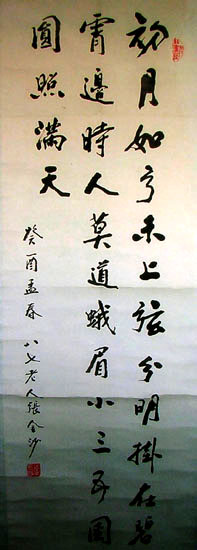 初月如弓未上弦分明掛在碧
霄邊時人莫道蛾眉小三五團
圓照滿天
癸酉孟春 八七老人張金沙